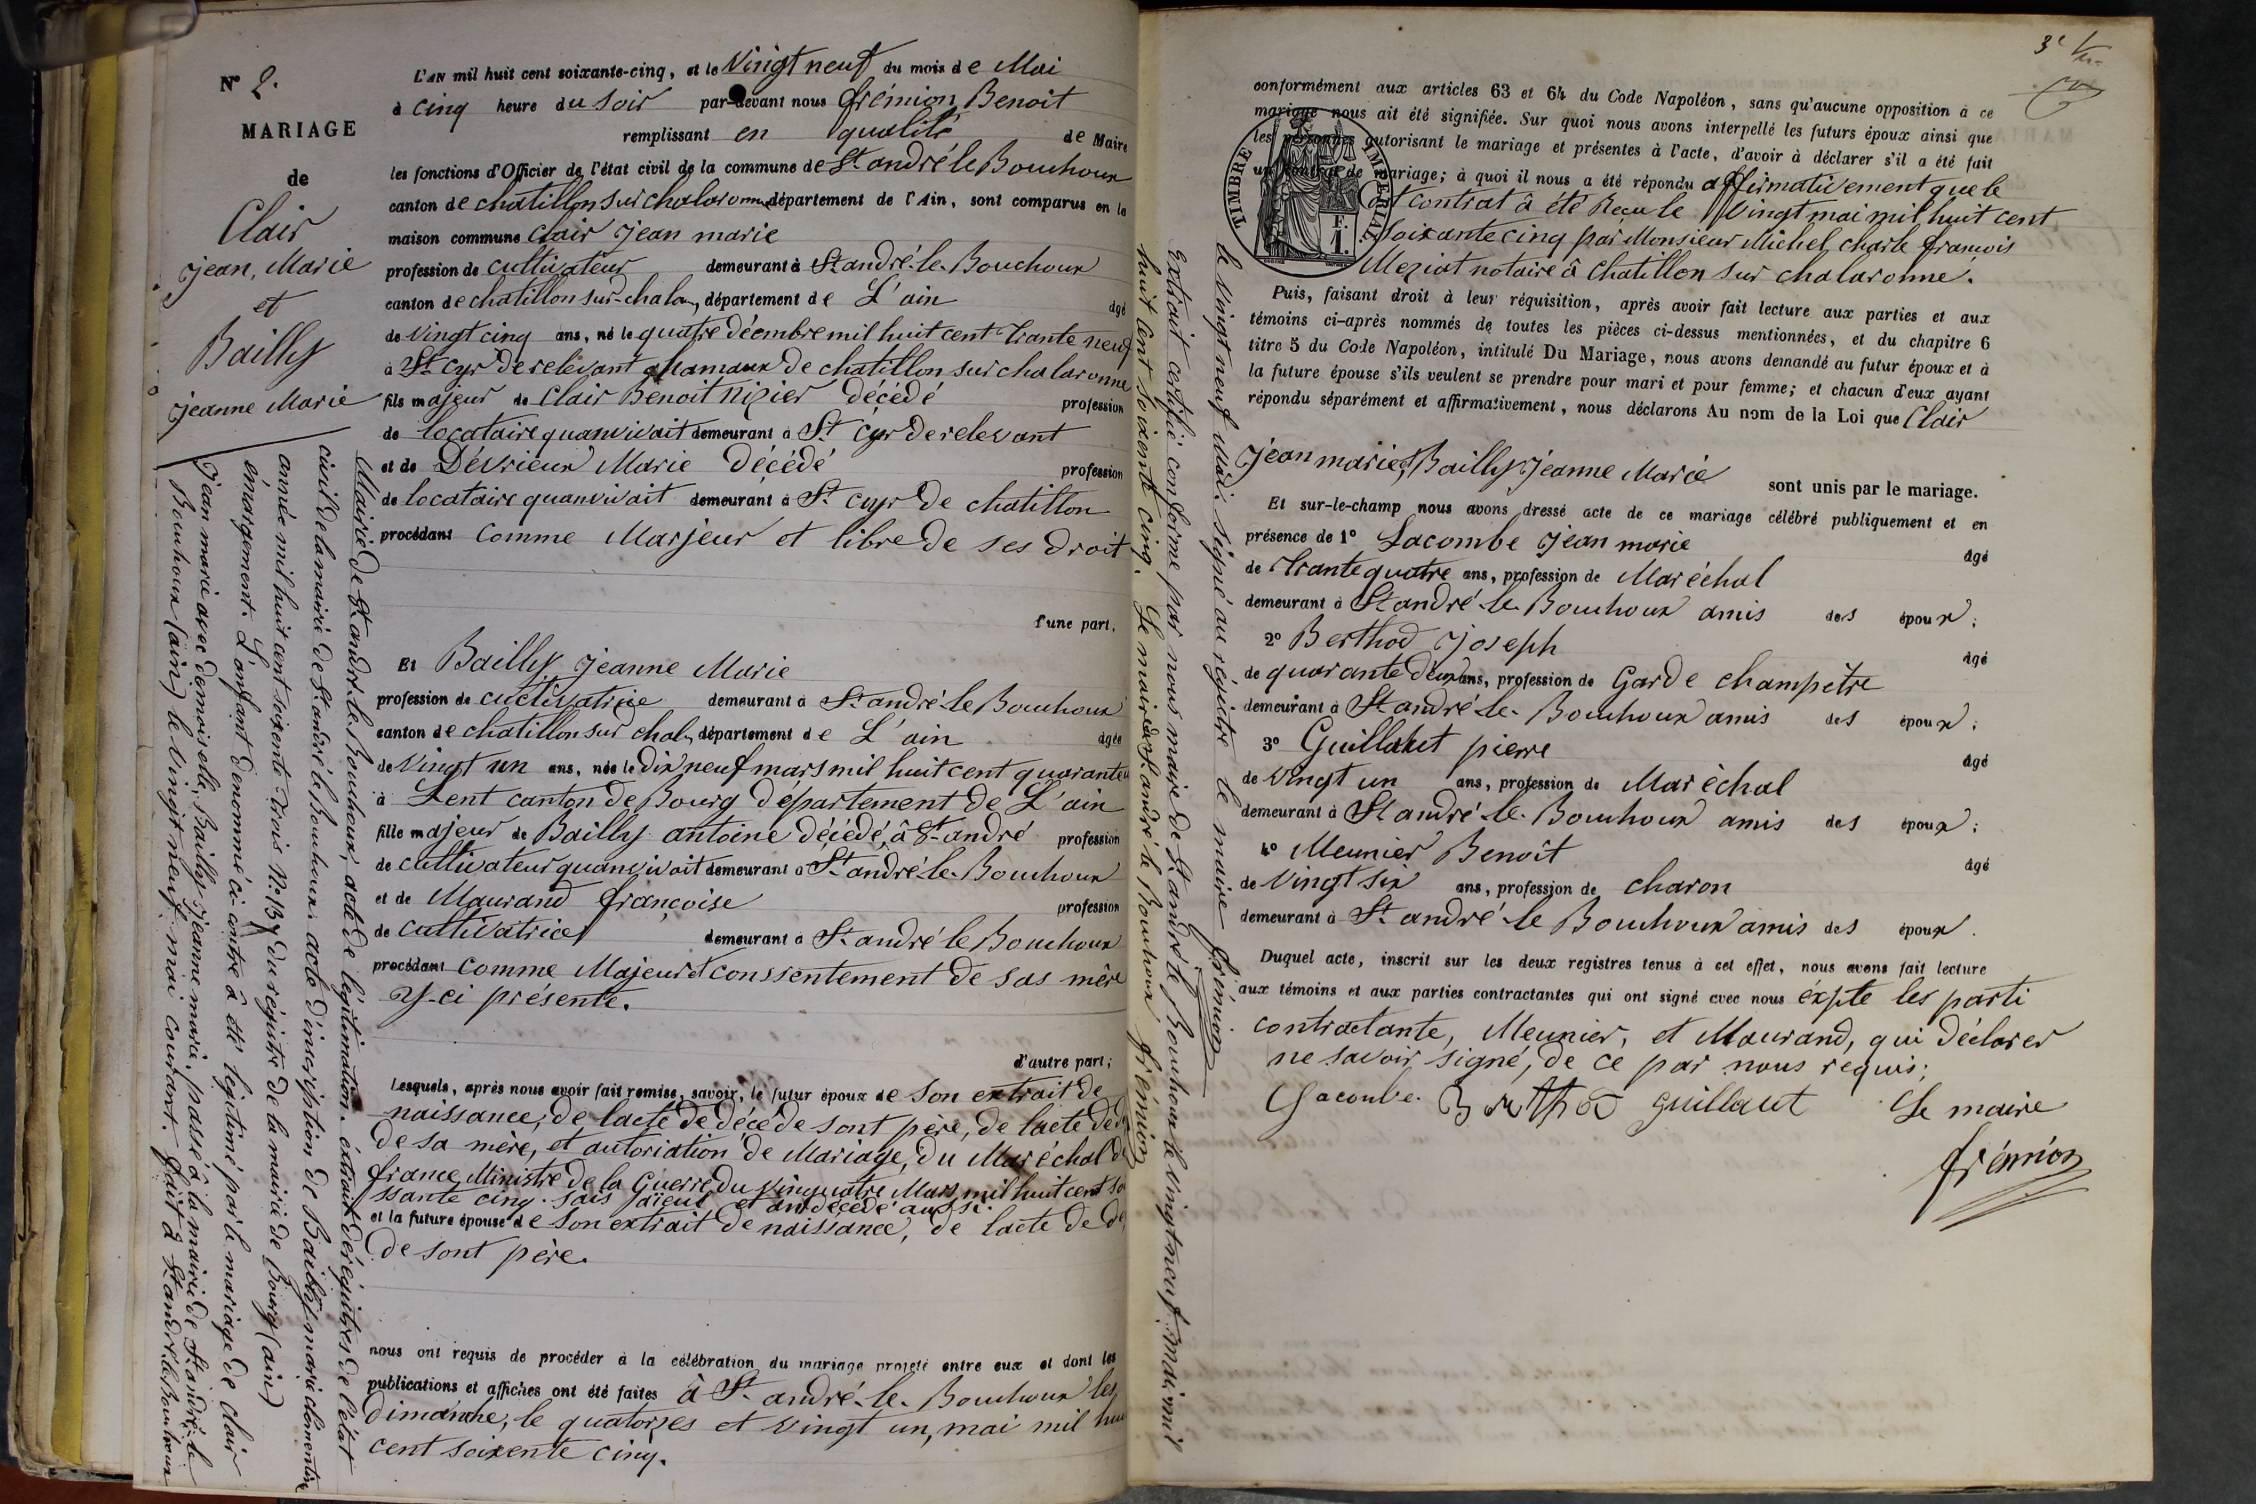 N° 2.
MARIAGE
de
Clair
jean, Marie
et
Bailly
jeanne Marie
L'AN mil huit cent soixante-cinq, et le Vingt neuf du mois de Mai
à cinq heure du soir par-devant nous frémion Benoit
remplissant en qualité de Maire
les fonctions d'Officier de l'état civil de la commune de St. andré le Bouchoux
canton de chatillon sur chalaronne département de l'Ain, sont comparus en la
maison commune Clair jean marie
profession de cultivateur demeurant à St. andré-le-Bouchoux
canton de chatillon sur-chala, département de L'ain âgé
de Vingt cinq ans, né le quatre décembre mil huit cent trante neuf
à St. Cyr de relevant hamaux de chatillon sur chalaronne
fils majeur de Clair Benoit Nizier décédé profession
de locataire quanvivait demeurant à St. Cyr de relevant
et de Dévrieux Marie décédé profession
de locataire quanvivait demeurant à St. cyr de chatillon
procédant comme Marjeur et libre de ses droit
d'une part,
Et Bailly jeanne Marie
profession de cuctivatrice demeurant à St. andré-le Bouchoux
canton de chatillon sur chal, département de L'ain âgée
de Vingt un ans, née le dix neuf mars mil huit cent quarante
à Lent canton de Bourg département de L'ain
fille majeur de Bailly antoine décédé, â St. andré profession
de cultivateur quanvivait demeurant à St. andré-le-Bouchoux
et de Maurand françoise profession
de cultivatrice demeurant à St. andré le Bouchoux
procédant comme Majeur et conssentement de sas mêre
y-ci présente.
d'autre part;
Lesquels, après nous avoir fait remise, savoir, le futur époux de son extrait de
naissance, de lacte de décé de sont père, de lacte de
de sa mère, et autoriation de Mariage, du Maréchal de
france Ministre de la Guerre du vinquatre Mars mil huit cent soi
ssante cinq. sais aïeux et an décédé aussi.
et la future épouse de son extrait de naissance, de lacte de dé
de sont père.
nous ont requis de procéder à la célébration du mariage projeté entre eux et dont les
publications et affiches ont été faites â St. andré-le-Bouchoux les
dimanche, le quatorzes et vingt un, mai mil hui
cent soixente cinq.
Mairie de St. andré-le-Bouchoux, acte de légitimation. éxtrait dérégistres de l'état
civil de la mairie de St. andré le Bouchoux. acte d'inscription de Bailly marie clémentine
année mil huit cent soixente trois N° 137 du régistre de la mairie de Bourg (ain)
émargement. L'anfant dénommé ci-contre à été légitimé par le mariage de clair
jean marie avec demoiselle Bailly jeanne marie, passé â la mairie de St. andré-le
Bouchoux (ain) le Vingt neuf mai courant. fait à St. andré-le-Bouchoux
le Vingt neuf Mai. Signé au régistre le maire frémion
Extrait certifié conforme par nous maire de St. andré le Bouchoux le vingt neuf mai mil
huit cent soixente cinq. Le maire de St. andré le Bouchoux frémion
conformément aux articles 63 et 64 du Code Napoléon, sans qu'aucune opposition à ce
mariage nous ait été signifiée. Sur quoi nous avons interpellé les futurs époux ainsi que
les personnes autorisant le mariage et présentes à l'acte, d'avoir à déclarer s'il a été fait
un contrat de mariage; à quoi il nous a été répondu affirmativement que le
TIMBRE IMPERIAL. 1 F.
contrat â été recu le Vingt mai mil huit cent
soixante cinq par Monsieur Michel, charle françois
Meziat notaire â chatillon sur chalaronne.
Puis, faisant droit à leur réquisition, après avoir fait lecture aux parties et aux
témoins ci-après nommés de toutes les pièces ci-dessus mentionnées, et du chapitre 6
titre 5 du Code Napoléon, intitulé Du Mariage, nous avons demandé au futur époux et à
la future épouse s'ils veulent se prendre pour mari et pour femme; et chacun d'eux ayant
répondu séparément et affirmativement, nous déclarons Au nom de la Loi que Clair
jean marie, Bailly jeanne Marie
sont unis par le mariage.
Et sur-le-champ nous avons dressé acte de ce mariage célébré publiquement et en
présence de 1° Lacombe jean marie âgé
de trante quatre ans, profession de Maréchal
demeurant à St. andré-le-Bouchoux amis des époux;
2° Berthod joseph âgé
de quarante deux ans, profession de Garde champêtre
demeurant à St. andré-le-Bouchoux amis des époux;
3° Guillaut pierre âgé
de vingt un ans, profession de Maréchal
demeurant à St andré-le-Bouchoux amis des époux;
4° Meunier Benoît âgé
de Vingt six ans, profession de charon
demeurant à St. andré-le Bouchoux amis des époux.
Duquel acte, inscrit sur les deux registres tenus à cet effet, nous avons fait lecture
aux témoins et aux parties contractantes qui ont signé avec nous éxpte les parti
contractante, Meunier, et Maurand, qui déclarer
ne savoir signé, de ce par nous requis;
Lacombe. Berthod Guillaut Le maire
frémion